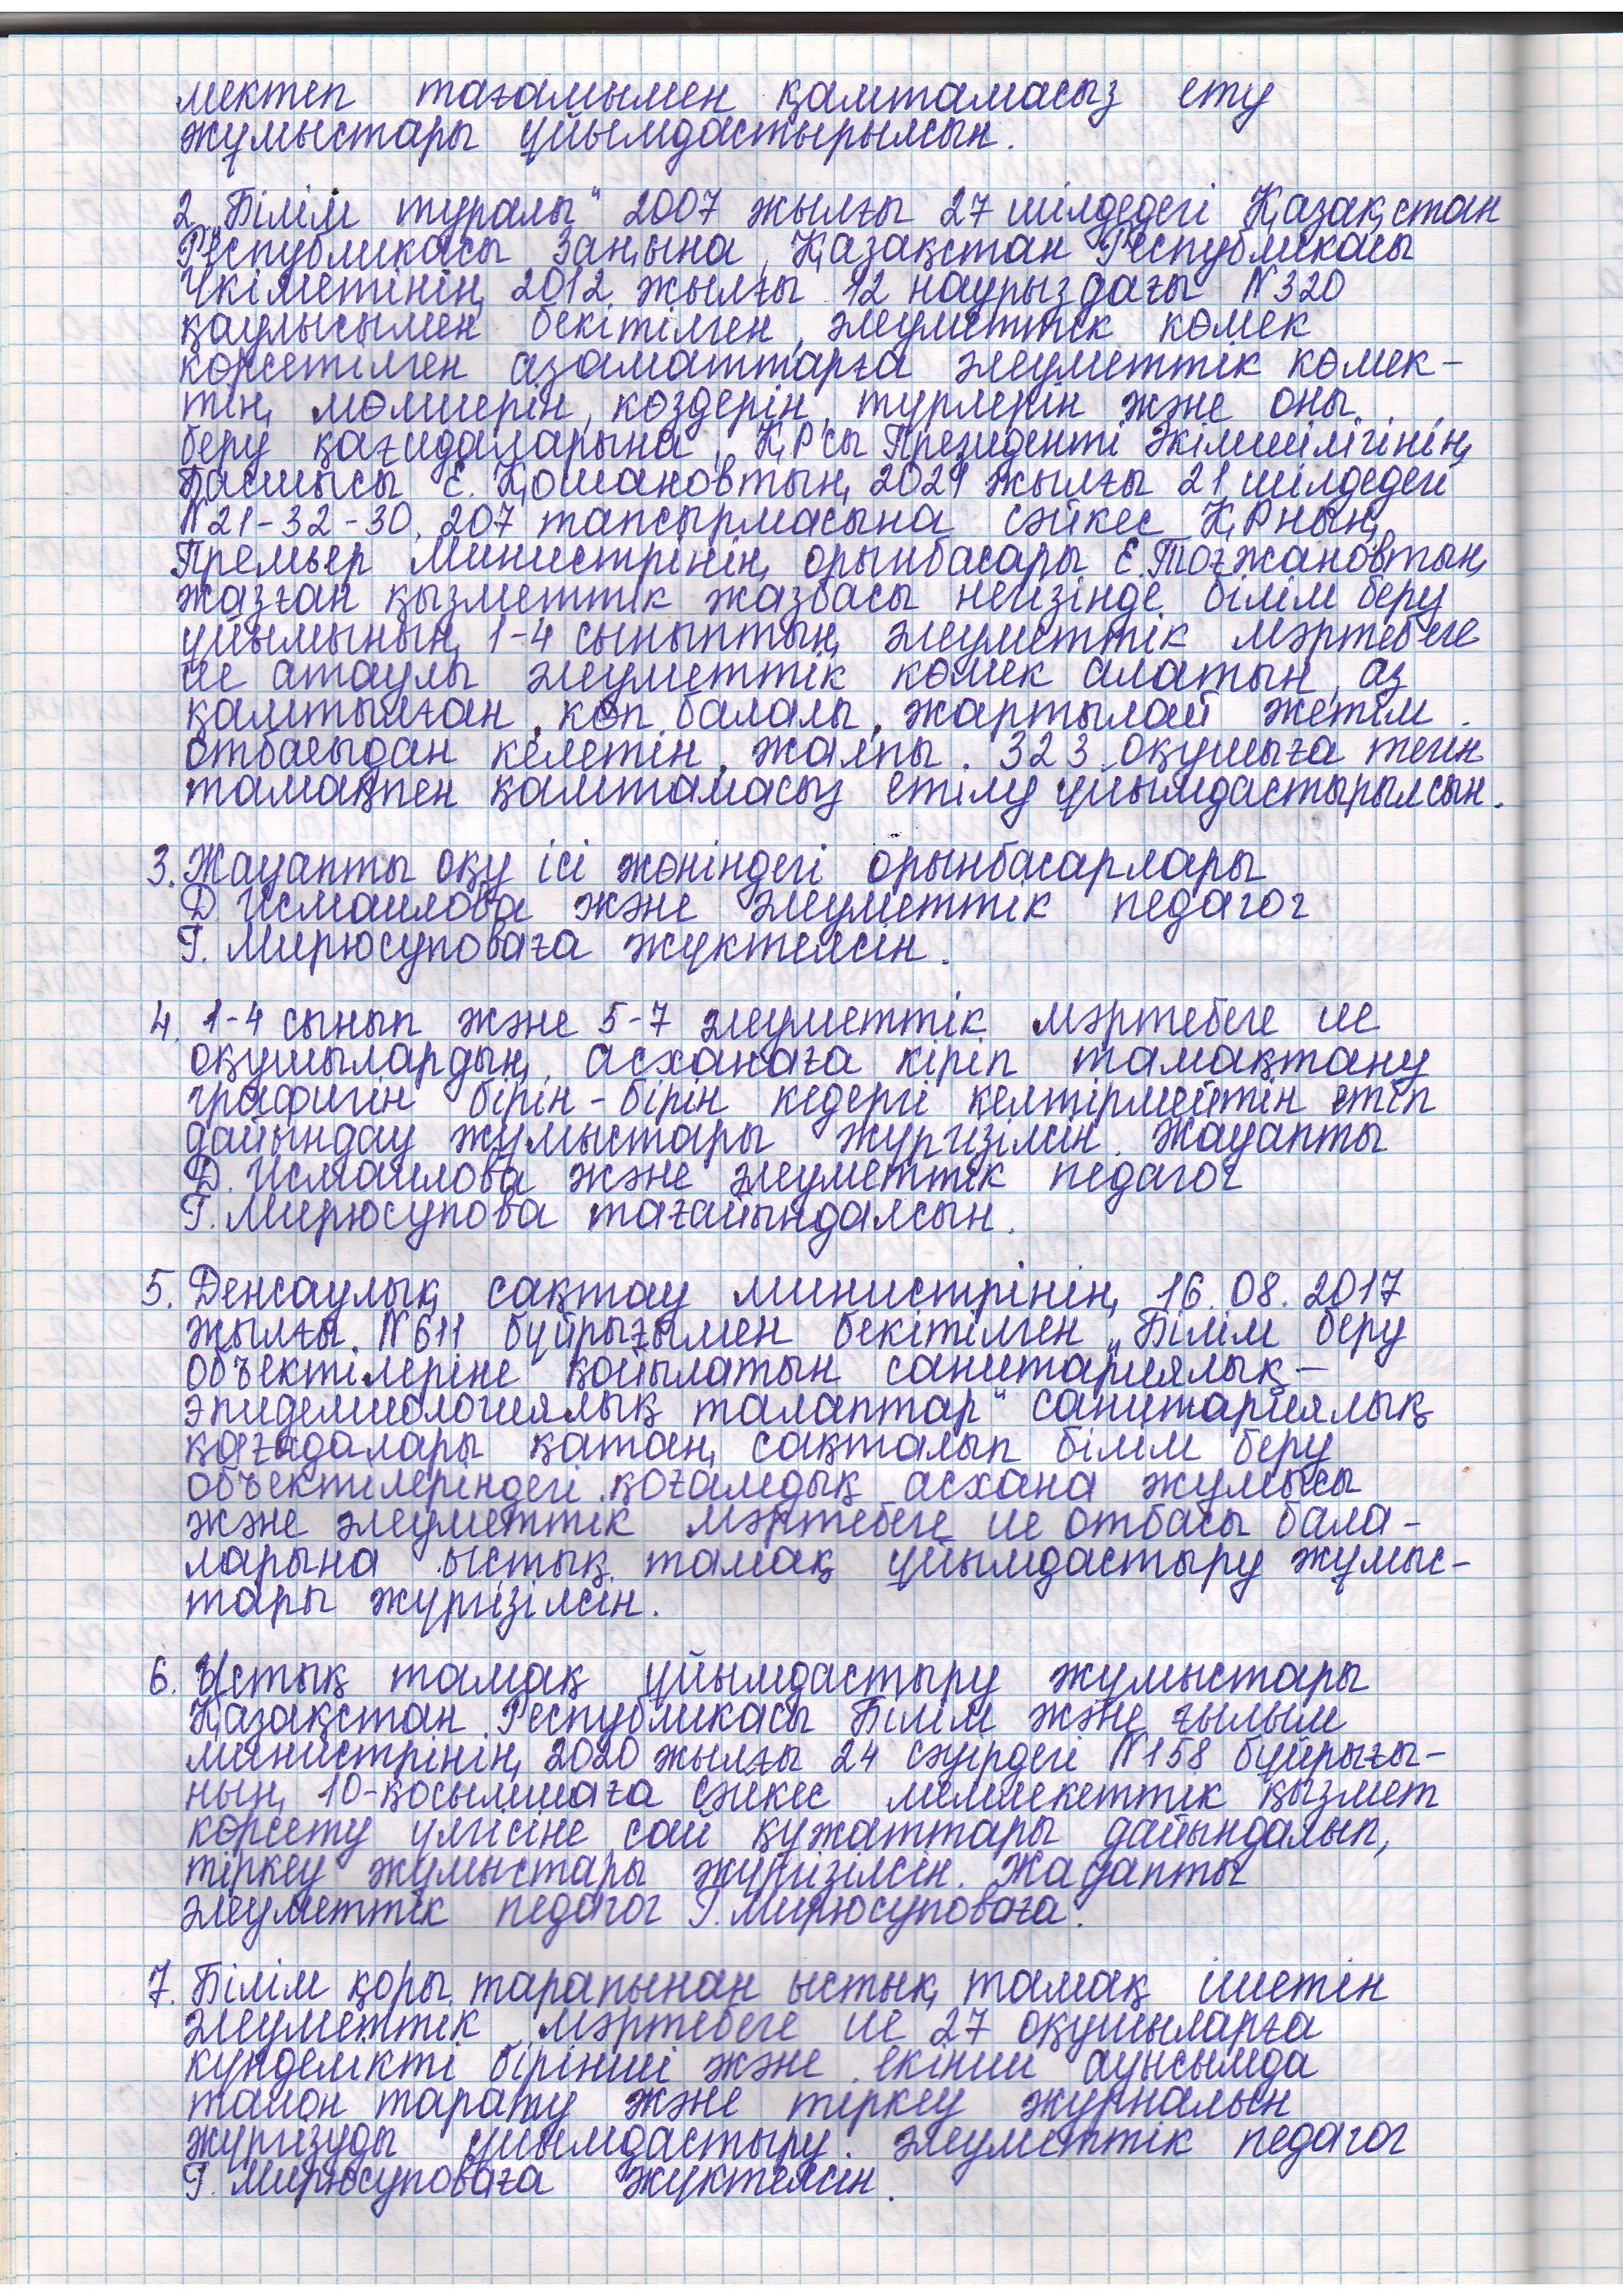 мектеп тағамымен қамтамасыз ету
жұмыстары ұйымдастырылсын.
2. „Білім туралы" 2007 жылғы 27 шілдедегі Қазақстан
Республикасы Заңына, Қазақстан Республикасы
Үкіметінің 2012 жылғы 12 наурыздағы N320
қаулысымен бекітілген, әлеуметтік көмек
көрсетілген азаматтарға әлеуметтік көмек-
тің мөлшерін, көздерін, түрлерін және оны
беру қағидаларына, ҚР'сы Президенті Әкімшілігінің
Басшысы Е. Қошановтың 2021 жылғы 21 шілдедегі
N21-32-30.207 тапсырмасына сәйкес ҚРның
Премьер Министрінің орынбасары Е.Тоғжановтың
жазған қызметтік жазбасы негізінде білім беру
ұйымының 1-4 сыныптың әлеуметтік мәртебеге
ие атаулы әлеуметтік көмек алатын, аз
қамтылған, көп балалы, жартылай жетім
отбасыдан келетін, жалпы 323 оқушыға тегін
тамақпен қамтамасыз етілу ұйымдастырылсын.
3. Жауапты оқу ісі жөніндегі орынбасарлары
Д Исмаилова және әлеуметтік педагог
Г. Мирюсуповаға жүктелсін.
4. 1-4 сынып және 5-7 әлеуметтік мәртебеге ие
оқушылардың асханаға кіріп тамақтану
графигін бірін-бірін кедергі келтірмейтін етіп
дайындау жұмыстары жүргізілсін. Жауапты
Д. Исмаилова және әлеуметтік педагог
Г. Мирюсупова тағайындалсын.
5. Денсаулық сақтау министрінің 16.08.2017
жылғы N611 бұйрығымен бекітілген „Білім беру
объектілеріне қойылатын санитариялық-
эпидемиологиялық талаптар" санитариялық
қағидалары қатаң сақталып білім беру
объектілеріндегі қоғамдық асхана жұмысы
және әлеуметтік мәртебеге ие отбасы бала-
ларына ыстық тамақ ұйымдастыру жұмыс-
тары жүргізілсін.
6. Ыстық тамақ ұйымдастыру жұмыстары
Қазақстан Республикасы Білім және ғылым
министрінің 2020 жылғы 24 сәуірдегі N158 бұйрығы-
ның 10-қосымшаға сәйкес мемлекеттік қызмет
көрсету үлгісіне сай құжаттары дайындалып,
тіркеу жұмыстары жүргізілсін. Жауапты
әлеуметтік педагог Г. Мирюсуповаға.
7. Білім қоры тарапынан ыстық тамақ ішетін
әлеуметтік мәртебеге ие 27 оқушыларға
күнделікті бірінші және екінші ауысымда
талон тарату және тіркеу журналын
жүргізуді ұйымдастыру әлеуметтік педагог
Г. Мирюсуповаға жүктелсін.